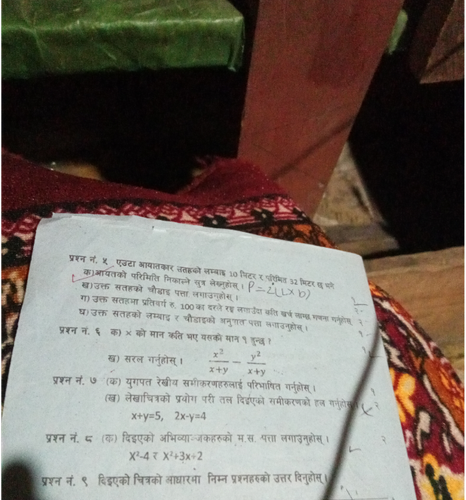 प्रश्न नं. ५ एउटा आयातकार सतहको लम्बाइ 10 मिटर र परिमिति 32 मिटर छ भने
क)आयतको परिमिति निकाल्ने सुत्र लेख्नुहोस् । P=2(L×b)
ख)उक्त सतहको चौडाइ पत्ता लगाउनुहोस् । १
ग) उक्त सतहमा प्रतिवर्ग रु. 100 का दरले रङ्ग लगाउँदा कति खर्च लाग्छ गर्नुहोस् २
घ) उक्त सतहको लम्बाइ र चौडाइको अनुपात पत्ता लगाउनुहोस् । १
प्रश्न नं. ६ क) × को मान कति भए यसको मान १ हुन्छ ?
ख) सरल गर्नुहोस् । x²/x+y − y²/x+y
प्रश्न नं. ७ (क) युगपत रेखीय समीकरणहरूलाई परिभाषित गर्नुहोस् । १
(ख) लेखाचित्रको प्रयोग गरी तल दिइएको समीकरणको हल गर्नुहोस् २
x+y=5, 2x-y=4
प्रश्न नं. ८ (क) दिइएको अभिव्यञ्जकहरूको म.स. पत्ता लगाउनुहोस् । २
X²-4 र X²+3x+2
प्रश्न नं. ९ दिइएको चित्रको आधारमा निम्न प्रश्नहरूको उत्तर दिनुहोस् ।